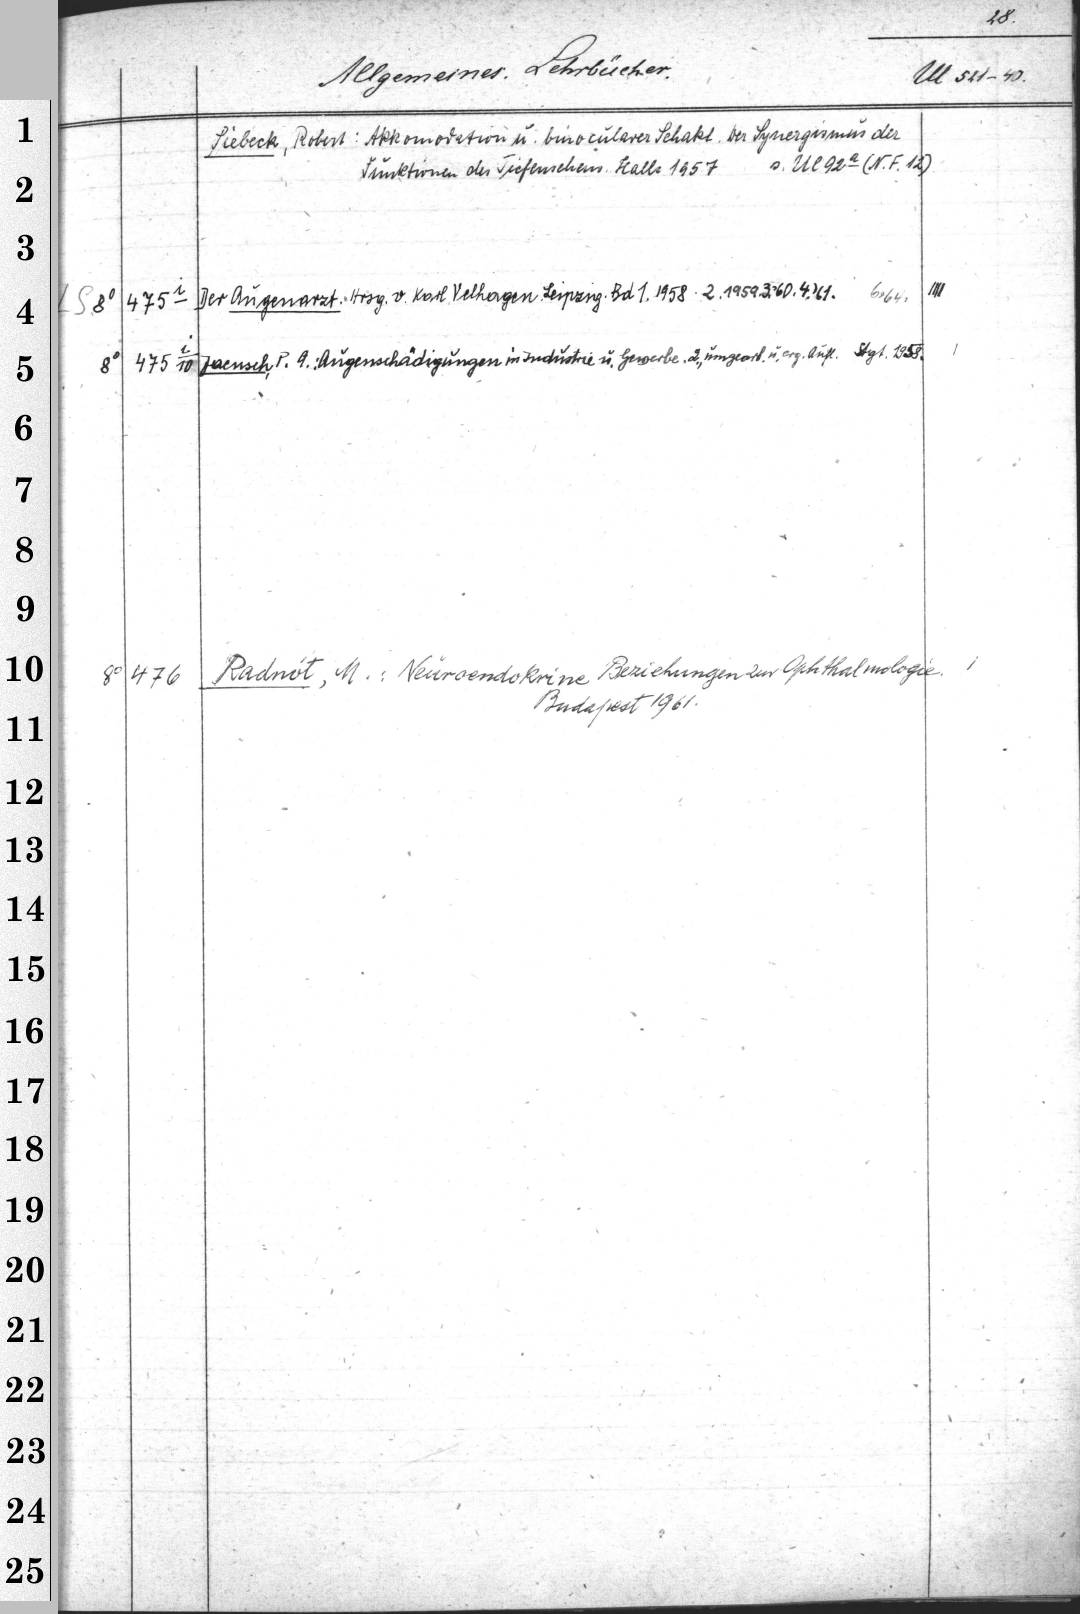 28.
Allgemeines. Lehrbücher.
Ul 521-40.
1
Siebeck, Robert: Akkomodation u. binocularer Sehakt. Der Synergismus der
2
Funktionen des Tiefensehens. Halle 1957 s. Ul 92a (N.F. 12)
3
4
LS 8° 475 i Der Augenarzt. Hrsg. v. Karl Velhagen. Leipzig. Bd 1. 1958. 2. 1959. 3. 60. 4. 61. 6. 64. IIII
5
8° 475 i/10 Jaensch, P. A.: Augenschädigungen in Industrie u. Gewerbe. 2., umgearb. u. erg. Aufl. Stgt. 1958. I
6
7
8
9
10
8° 476 Radnót, M.: Neuroendokrine Beziehungen zur Ophthalmologie. I
Budapest 1961.
11
12
13
14
15
16
17
18
19
20
21
22
23
24
25